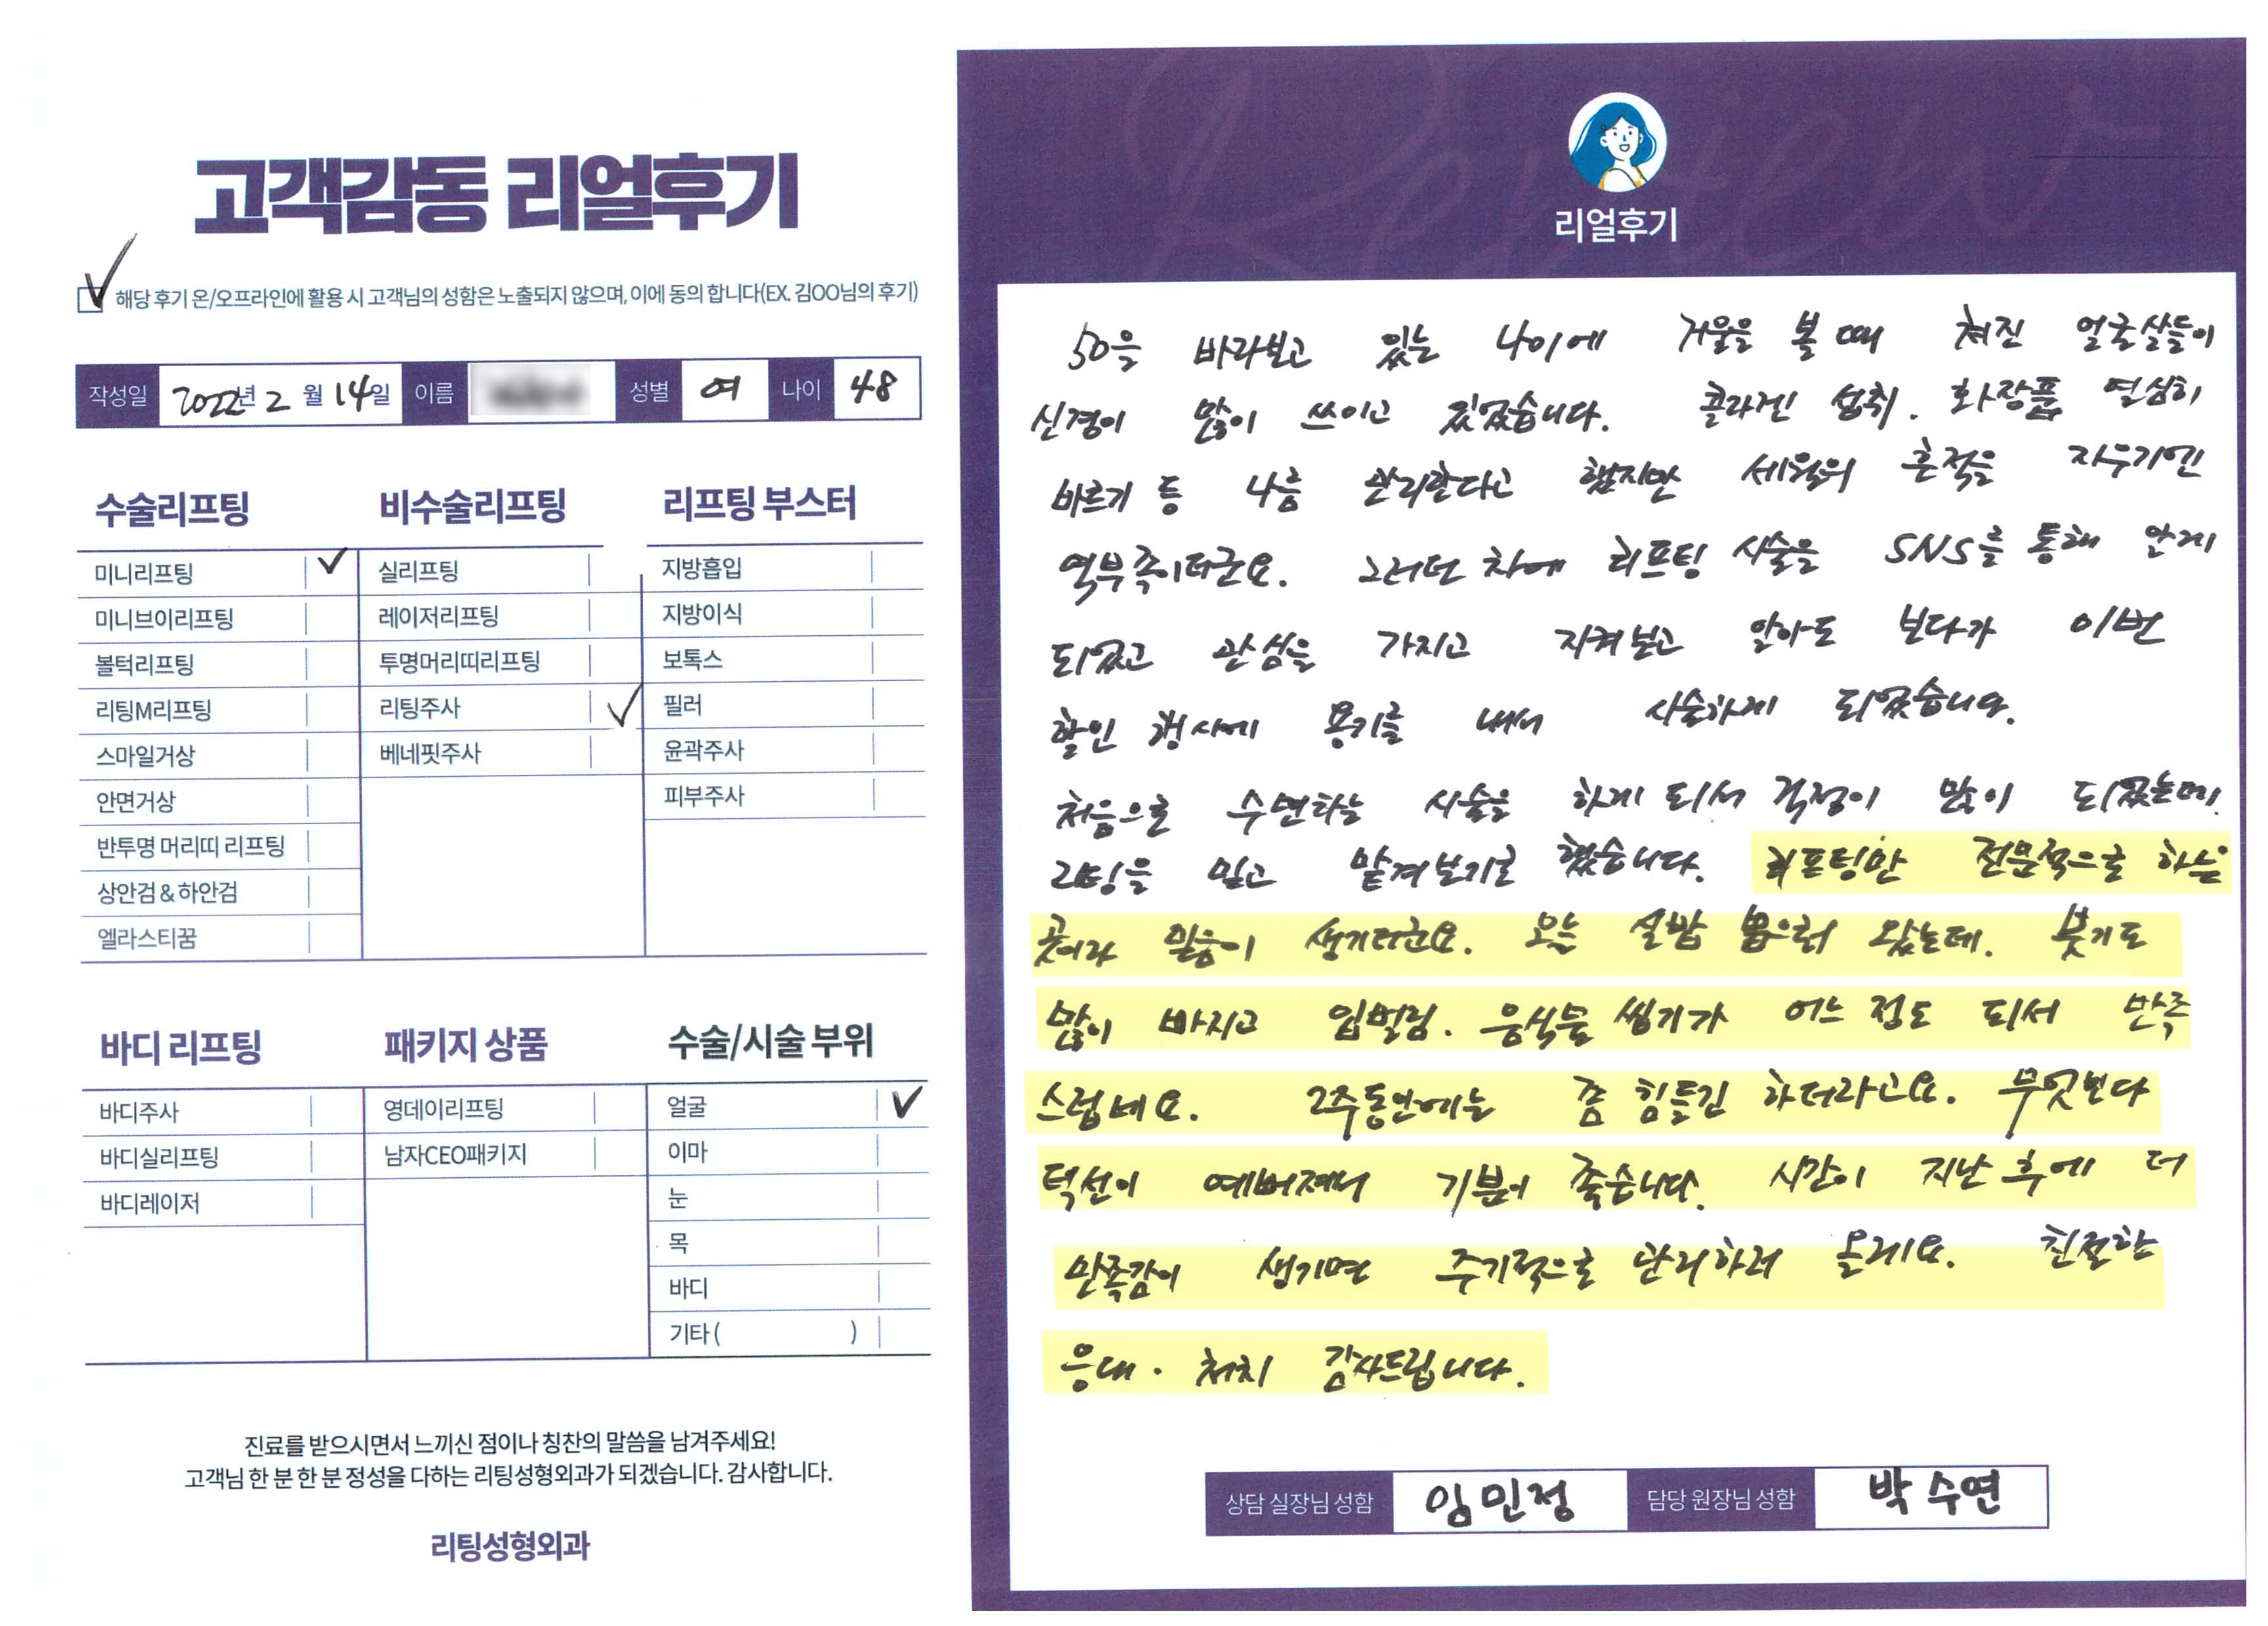 고객감동 리얼후기
해당 후기 온/오프라인에 활용 시 고객님의 성함은 노출되지 않으며, 이에 동의 합니다(EX. 김OO님의 후기)
작성일 2022년 2 월 14일 이름 성별 여 나이 48
수술리프팅
미니리프팅
미니브이리프팅
볼턱리프팅
리팅M리프팅
스마일거상
안면거상
반투명 머리띠 리프팅
상안검 & 하안검
엘라스티꿈
비수술리프팅
실리프팅
레이저리프팅
투명머리띠리프팅
리팅주사
베네핏주사
리프팅 부스터
지방흡입
지방이식
보톡스
필러
윤곽주사
피부주사
바디 리프팅
바디주사
바디실리프팅
바디레이저
패키지 상품
영데이리프팅
남자CEO패키지
수술/시술 부위
얼굴
이마
눈
목
바디
기타 ( )
진료를 받으시면서 느끼신 점이나 칭찬의 말씀을 남겨주세요!
고객님 한 분 한 분 정성을 다하는 리팅성형외과가 되겠습니다. 감사합니다.
리팅성형외과
Review
리얼후기
50을 바라보고 있는 나이에 거울을 볼 때 쳐진 얼굴살들이
신경이 많이 쓰이고 있었습니다. 콜라겐 섭취. 화장품 열심히
바르기 등 나름 관리한다고 했지만 세월의 흔적을 지우기엔
역부족이더군요. 그러던 차에 리프팅 시술을 SNS를 통해 알게
되었고 관심을 가지고 지켜보고 알아도 보다가 이번
할인 행사에 용기를 내서 시술하게 되었습니다.
처음으로 수면하는 시술을 하게 되서 걱정이 많이 되었는데.
리팅을 믿고 맡겨보기로 했습니다. 리프팅만 전문적으로 하는
곳이라 믿음이 생기더군요. 오늘 실밥 뽑으러 왔는데. 붓기도
많이 빠지고 입벌림. 음식물 씹기가 어느 정도 되서 만족
스럽네요. 2주동안에는 좀 힘들긴 하더라고요. 무엇보다
턱선이 예뻐져서 기분이 좋습니다. 시간이 지난 후에 더
만족감이 생기면 주기적으로 관리하러 올게요. 친절한
응대. 처치 감사드립니다.
상담 실장님 성함 임민정 담당 원장님 성함 박수연